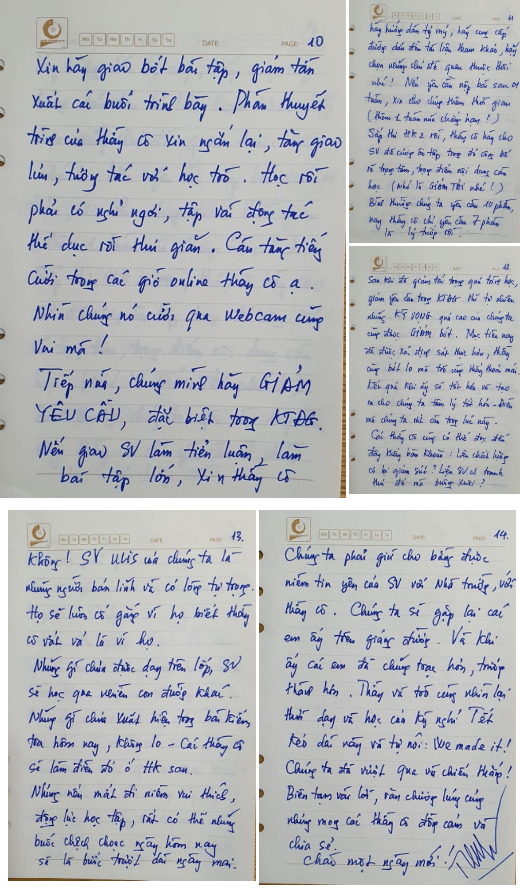 Mo Tu We Th Fr Sa Su DATE: PAGE: 10
Xin hãy giao bớt bài tập, giảm tần
xuất các buổi trình bày. Phần thuyết
trình của thầy cô xin ngắn lại, tăng giao
lưu, tương tác với học trò. Học rồi
phải có nghỉ ngơi, tập vài động tác
thể dục rồi thư giãn. Cần tăng tiếng
cười trong các giờ online thầy cô ạ.
Nhìn chúng nó cười qua webcam cũng
vui mà!
Tiếp nữa, chúng mình hãy GIẢM
YÊU CẦU, đặc biệt trong KTĐG.
Nếu giao SV làm tiểu luận, làm
bài tập lớn, xin thầy cô
11
hãy hướng dẫn tỷ mỷ, hãy cung cấp
đường dẫn đến tài liệu tham khảo, hãy
chọn những chủ đề quen thuộc thôi
nhé! Nếu yêu cầu nộp bài sau 01
tuần, xin cho chúng thêm thời gian
(thêm 1 tuần nữa chẳng hạn!)
Sắp thi HK2 rồi, thầy cô hãy cho
SV đề cương ôn tập, trong đó công bố
rõ trọng tâm, trọng điểm nội dung cần
học (nhớ là GIẢM TẢI nhé!)
Bình thường chúng ta yêu cầu 10 phần,
nay thầy cô chỉ yêu cầu 7 phần
là lý tưởng rồi.
12
Sau khi đã giảm tải trong quá trình học,
giảm yêu cầu trong KTĐG thì tự nhiên
những KỲ VỌNG quá cao của chúng ta
cũng được GIẢM bớt. Mục tiêu nay
đã được xác định sát thực hơn, thầy
cũng bớt lo mà trò cũng thấy thoải mái.
Kết quả khi ấy sẽ tốt hơn và tạo
ra cho chúng ta tâm lý tốt hơn - Điều
mà chúng ta rất cần trong lúc này.
Các thầy cô cũng có thể đọc đến
đây bỗng băn khoăn: liệu chất lượng
có bị giảm sút? Liệu SV có tranh
thủ đó mà buông xuôi?
Mo Tu We Th Fr Sa Su DATE: PAGE: 13.
Không! SV ULIS của chúng ta là
những người bản lĩnh và có lòng tự trọng.
Họ sẽ luôn cố gắng vì họ biết thầy
cô vất vả là vì họ.
Những gì chưa được dạy trên lớp, SV
sẽ học qua nhiều con đường khác.
Những gì chưa xuất hiện trong bài kiểm
tra hôm nay, không lo - Các thầy cô
sẽ làm điều đó ở HK sau.
Nhưng nếu mất đi niềm vui thích,
động lực học tập, rất có thể những
bước chệch choạc ngày hôm nay
sẽ là bước trượt dài ngày mai.
Mo Tu We Th Fr Sa Su DATE: PAGE: 14.
Chúng ta phải giữ cho bằng được
niềm tin yêu của SV với Nhà trường, với
thầy cô. Chúng ta sẽ gặp lại các
em ấy trên giảng đường. Và khi
ấy các em đã chững trạc hơn, trưởng
thành hơn. Thầy và trò cùng nhìn lại
thời dạy và học của kỳ nghỉ Tết
kéo dài này và tự nói: We made it!
Chúng ta đã vượt qua và chiến thắng!
Biên tạm vài lời, văn chương lủng củng
nhưng mong các thầy cô đồng cảm và
chia sẻ.
Chào một ngày mới!